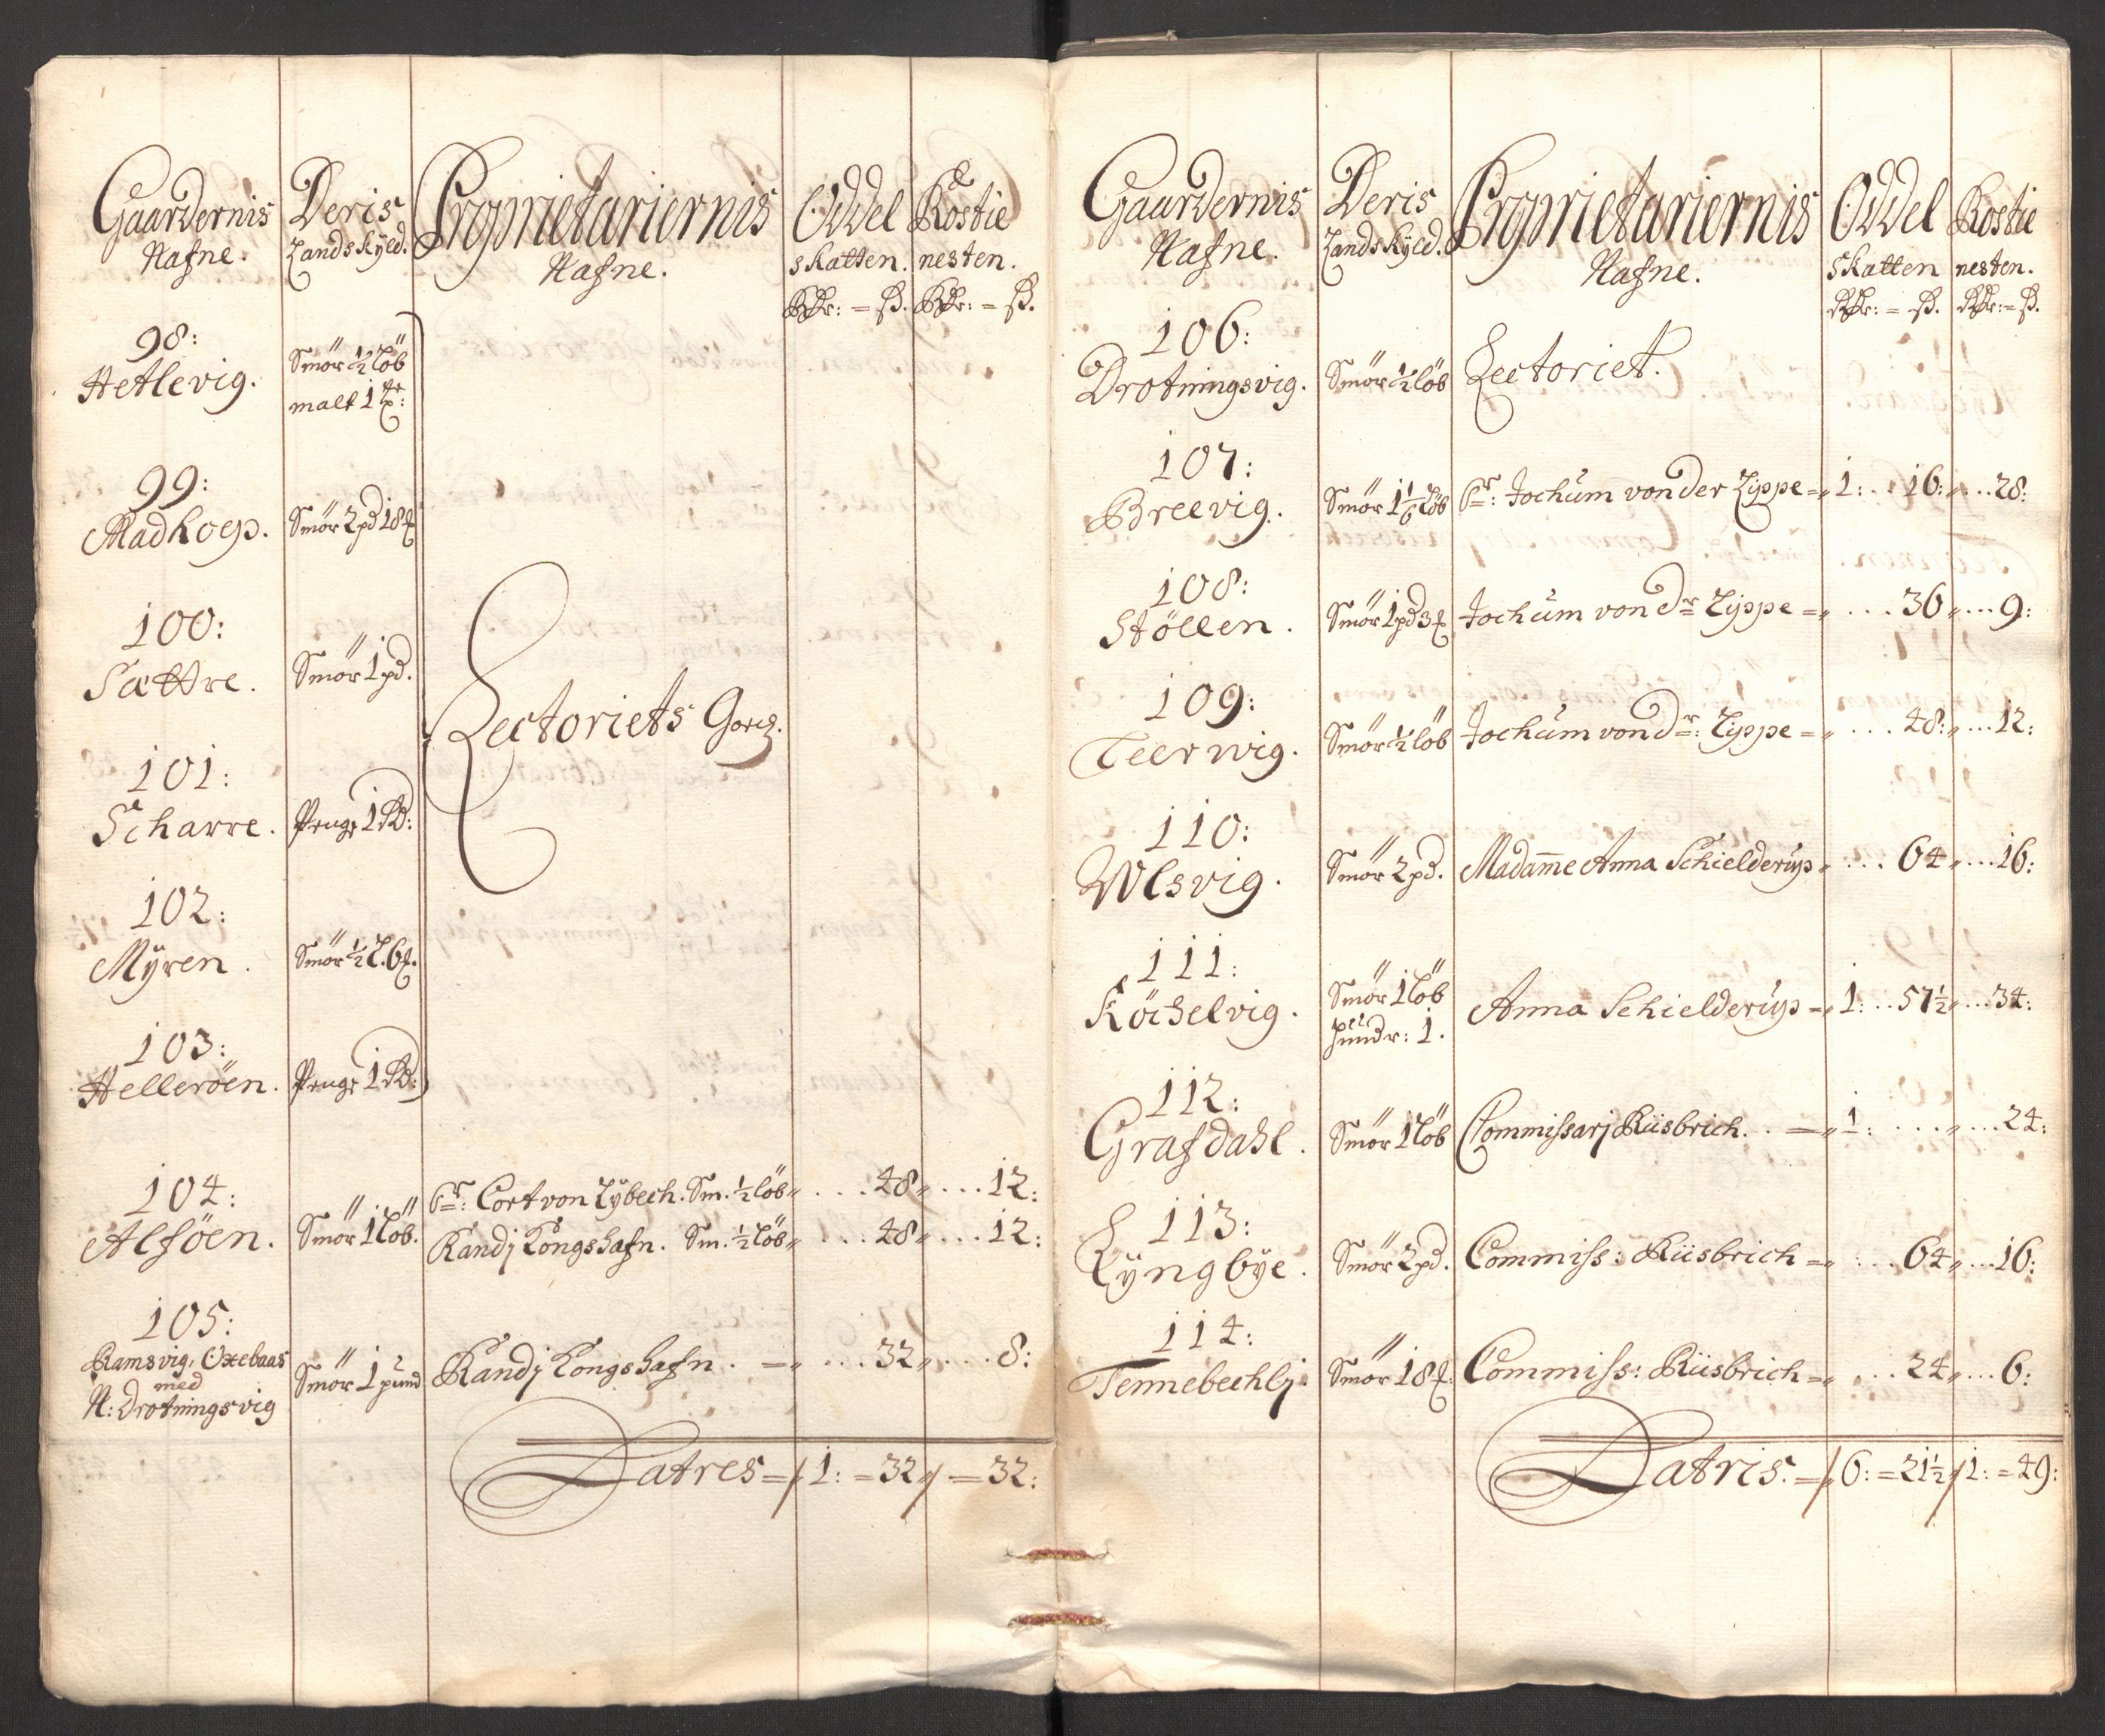 Gaardernis Nafne.
Deris Landskyld.
Proprietariernis Nafne.
Oddel skatten.
Rostienesten.
Rdr: = ß.
Rdr: = ß.
98:
Hetlevig. Smör ½ löb
malt 1
99:
Madhoep. Smör 2 pd 18
100:
Sættre. Smör 1 pd.
Lectoriets
101:
Scharre. Penge 1
102:
Mÿren. Smör ½ l. 6
103:
Helleröen. Penge 1
104:
Alföen. Smör 1 löb.
Sr: Cort von Lÿbech. Sm. ½ löb " . . . 48 " . . . 12:
Randj Kongshafn. Sm. ½ löb " . . . 48 " . . . 12:
105:
Ramsvig, Oxebaas
med
N: Drotningsvig Smör 1 pund Randj Kongshafn. = " . . . 32 " . . . 8:
Latres = / 1: = 32 " / = 32:
Gaardernis Nafne.
Deris Landskyld.
Proprietariernis Nafne.
Oddel skatten
Rostienesten.
Rdr: = ß.
Rdr: = ß.
106:
Drotningsvig. Smör ½ löb Lectoriet.
107:
Breevig. Smör 1 1/6 löb Sr: Jochum von der Lippe = " 1: . . 16: " . . . 28:
108:
Stöllen. Smör 1 pd 3 Jochum von dr Lippe = " . . . 36 " . . . 9:
109:
Teerwig. Smör ½ löb Jochum von dr: Lippe = " . . . 48: " . . . 12:
110:
Wlsvig. Smör 2 pd. Madamme Anna Schielderup " . . . 64 " . . . 16:
111:
Köchelvig. Smör 1 löb
hundr: 1. Anna Schielderup = " 1: . . 57½ " . . . 34:
112:
Grafdahl. Smör 1 löb Commissarj Riisbrich. . . = " 1: . . . " . . . 24:
113:
Lÿngbye. Smör 2 pd. Commiss: Riisbrich = " . . . 64 " . . . 16:
114:
Tennebechlj. Smör 18 Commiss: Riisbrich = " . . . 24 " . . . 6:
Latris. = / " 6: = 21½ " / 1: = 49: